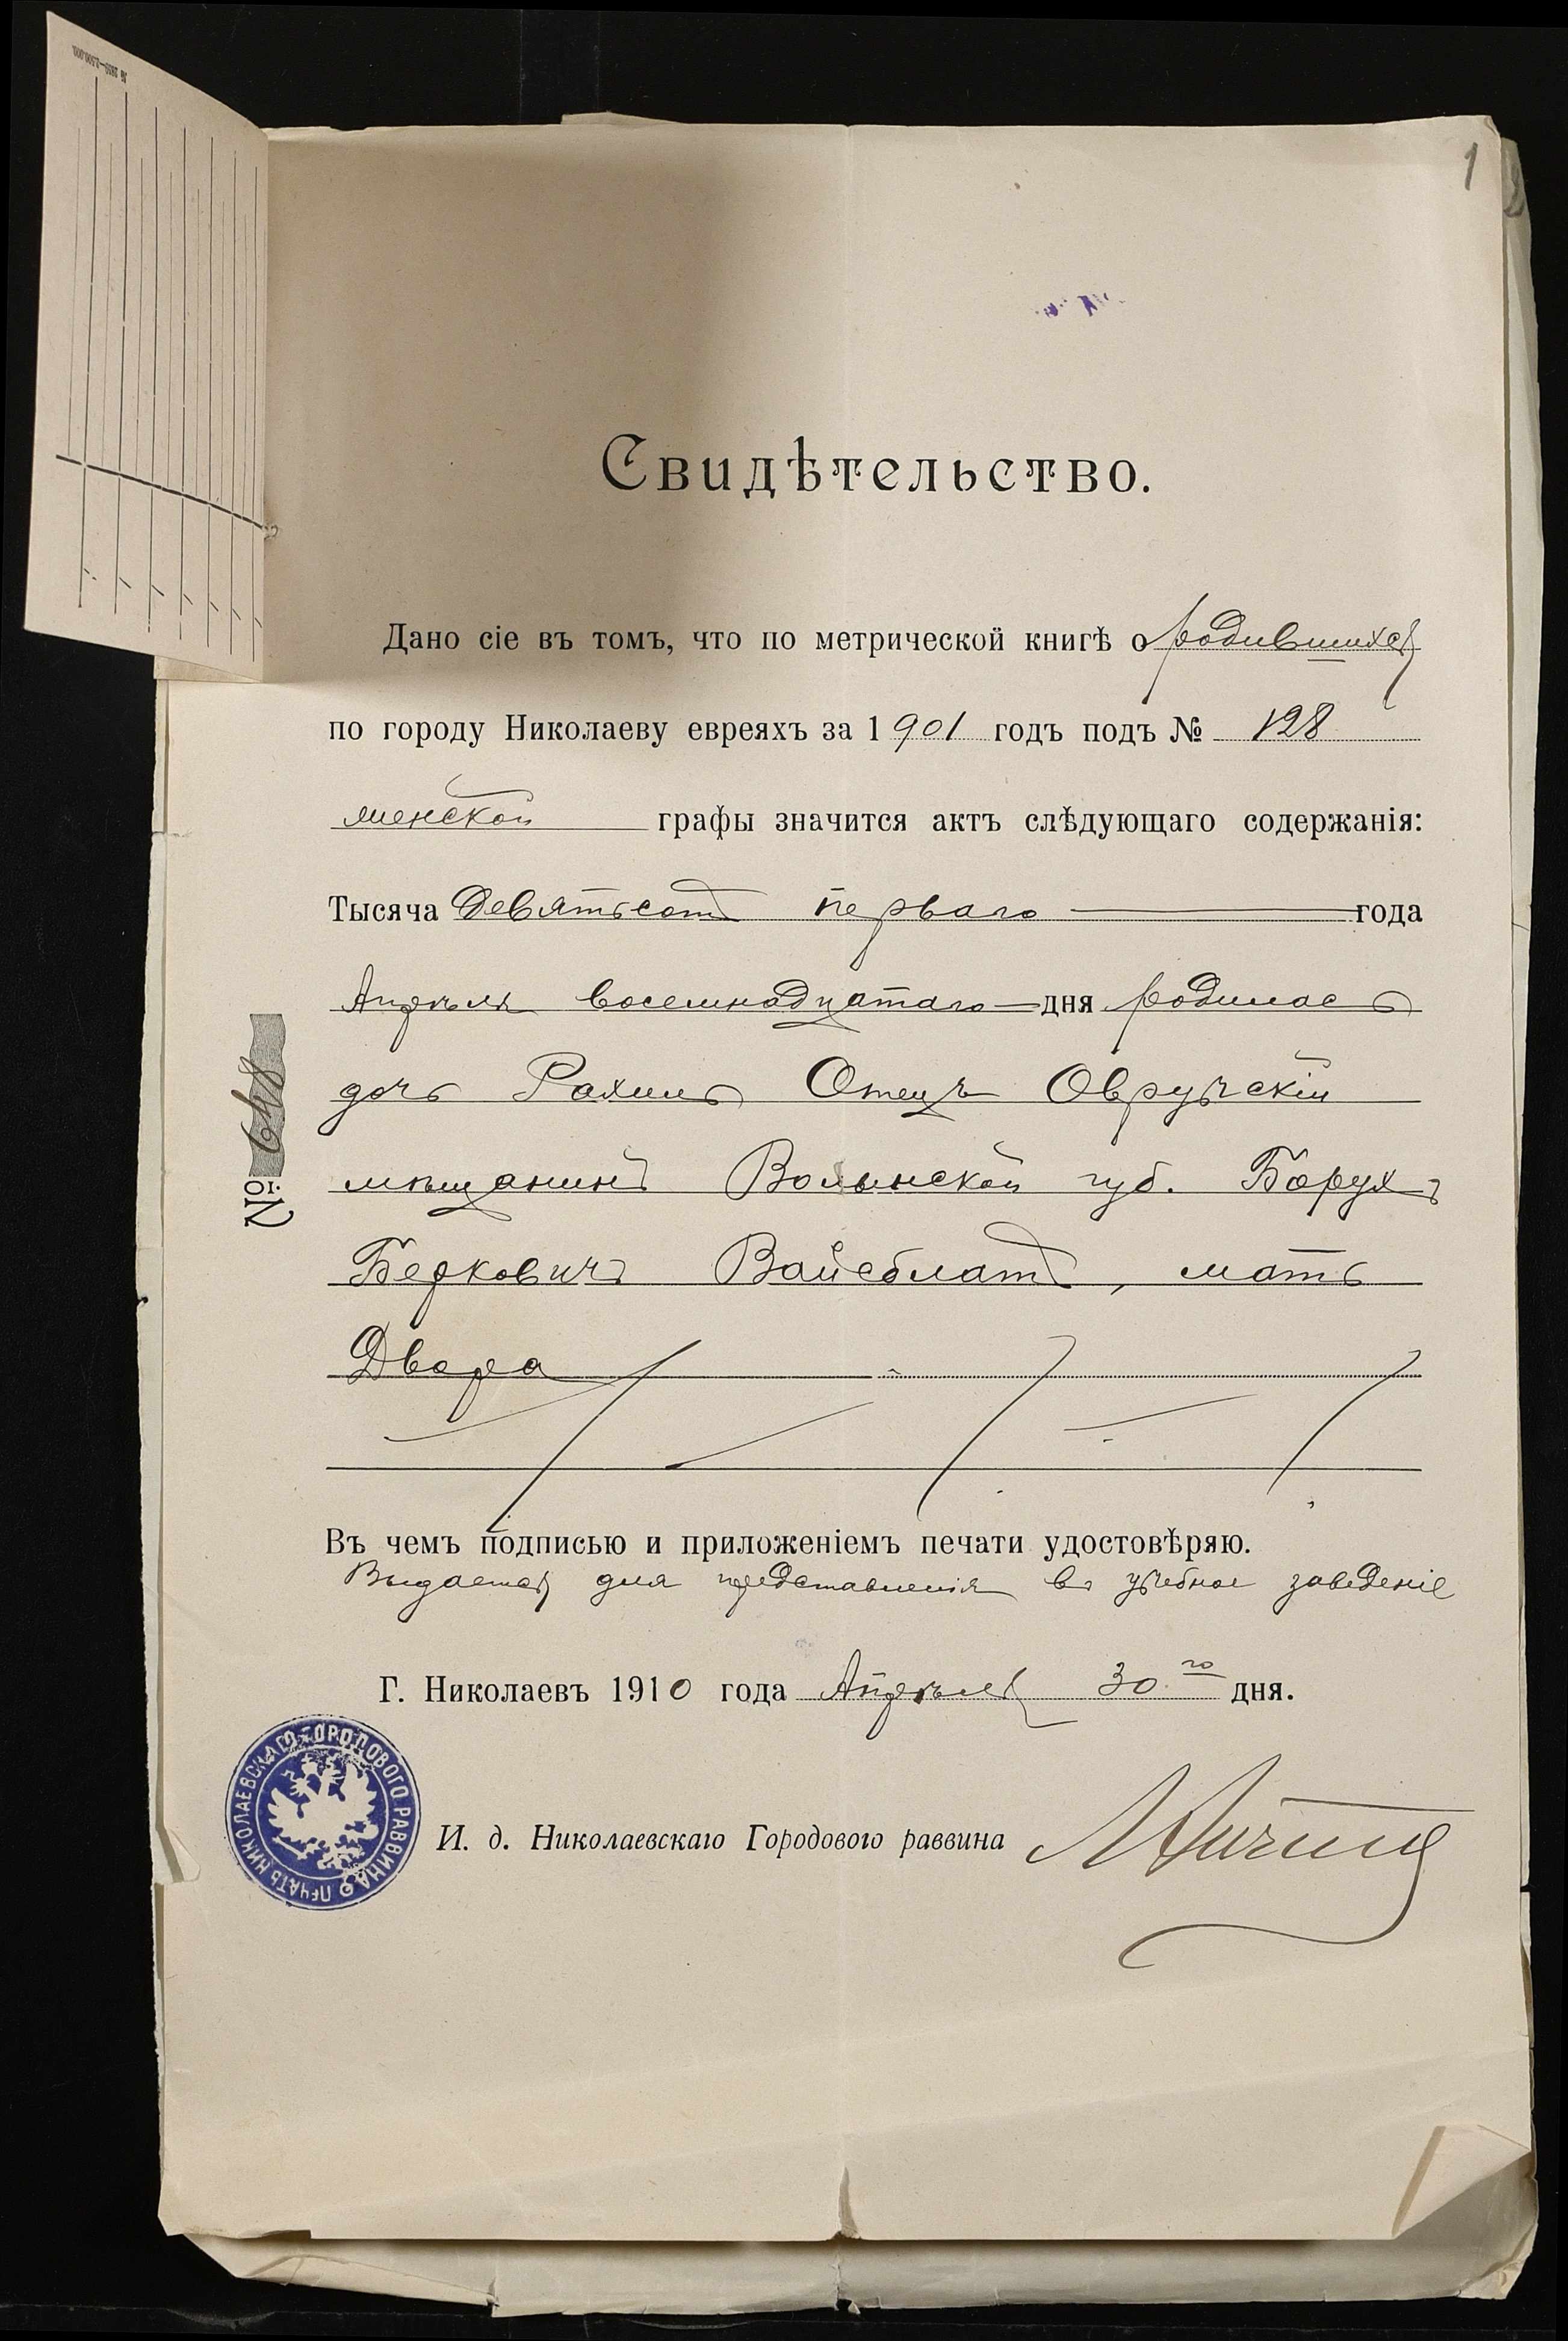 № 2839—2.500.000.
1
Свидѣтельство.
Дано сіе въ томъ, что по метрической книгѣ о родившихся
по городу Николаеву евреяхъ за 1901 годъ подъ № 128
женской графы значится актъ слѣдующаго содержанія:
Тысяча девятьсотъ перваго года
Апрѣля восемнадцатаго дня родилась
дочь Рахиль Отецъ Овручскій
мѣщанинъ Волынской губ. Борухъ
Берковичъ Вайсблатъ, мать
Двора
№ 648
Въ чемъ подписью и приложеніемъ печати удостовѣряю.
Выдается для представленія въ учебное заведеніе
Г. Николаевъ 1910 года Апрѣля 30го дня.
ПЕЧАТЬ НИКОЛАЕВСКАГО ГОРОДОВОГО РАВВИНА
И. д. Николаевскаго Городового раввина